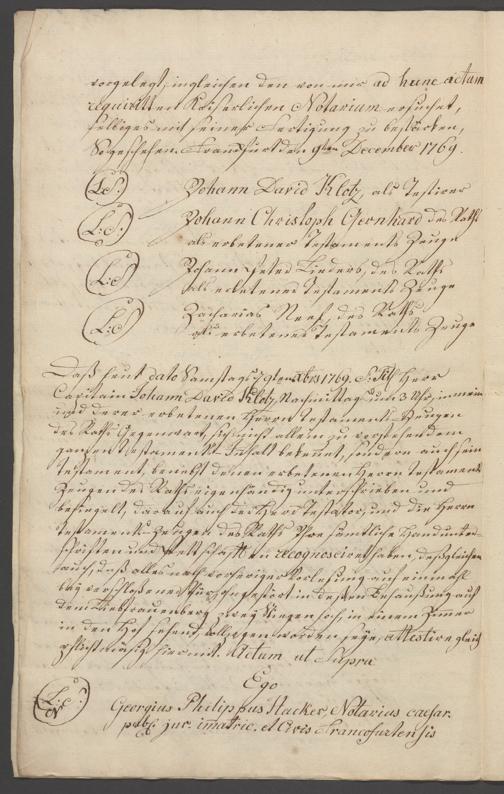 vorgelegt, ingleichen den von mir ad hunc actum
requirirten Kaiserlichen Notarium ersuchet,
selbiges mit seiner Fertigung zu bestärcken,
So geschehen Franckfurt den 9ten December 1769.
(L.S.) Johann David Klotz, als Testierer
(L.S.) Johann Christoph Gernhard des Raths
als erbetener Testaments Zeuge
(L.S.) Johann Peter Lieders, des Raths
als erbetener Testaments Zeuge
(L.S.) Zacharias Neef, des Raths
als erbetener Testaments Zeuge
Daß heut dato Samstags 9ten Xbris 1769. Herr
Capitain Johann David Klotz, Nachmittag um 3 Uhr, in mein
und derer erbetenen Herrn Testaments-Zeugen
des Raths Gegenwart, sich nicht allein zu vorstehendem
gantzen Testament Inhalt bekennt, sondern auch sein
Testament, benebst denen erbetenen Herrn Testaments
Zeugen des Raths eigenhändig unterschrieben und
besiegelt, darauf auch der Herr Testator, und die Herrn
Testaments-Zeugen des Raths Ihre sämtliche Handunter-
schriften und Pettschafft recognosciret haben, deßgleichen
auch, daß alles nach vorheriger Vorlesung auf einmahl
bey verschlossener Thür, ungestört in dessen Behausung auf
dem Liebfrauenberg zwey Stiegen hoch, in einem Zimmer
in den Hof sehend, vollzogen worden seye, attestire gleich
pflichtmäsig hiermit. Actum ut Supra
Ego
(L.S.) Georgius Philippus Hacker, Notarius caesar.
publ. jur. imatric. et Civis Francofurtensis